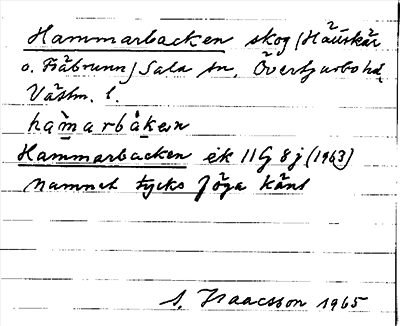 Hammarbacken skog (Härskär
o. Träbrunn) Sala sn, Övertjurbo hd,
Västm. l.
hamarbåken
Hammarbacken ek 11G 8j (1963)
Namnet tycks föga känt
S. Isaacsson 1965